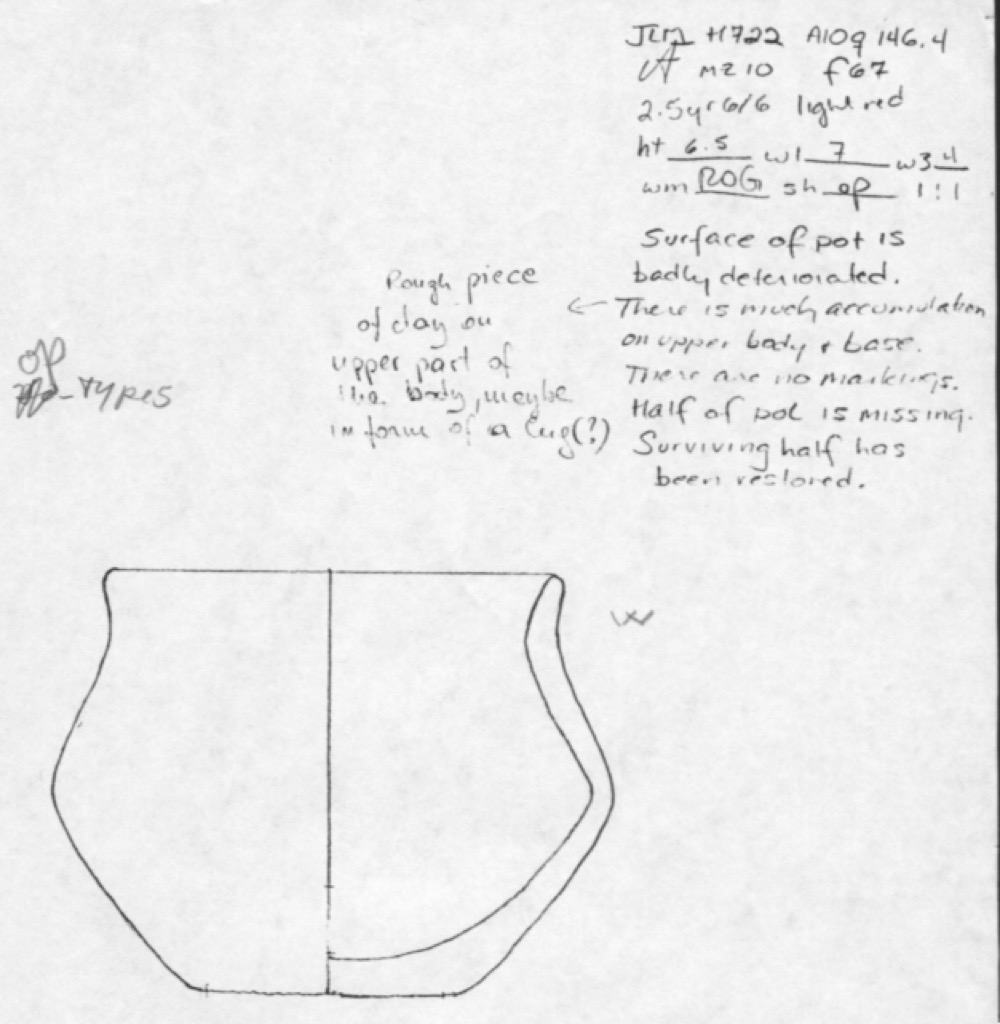 H722 A109 146.4
MZ10 f67
2.5yr 6/6 light red
ht 6.5 w1 7 w3 4
wm ROG sh op 1:1
Surface of pot is
badly deteriorated.
← There is much accumulation
on upper body + base.
There are no markings.
Half of pot is missing.
Surviving half has
been restored.
Rough piece
of clay on
upper part of
the body, maybe
in form of a lug(?)
op
-types
W